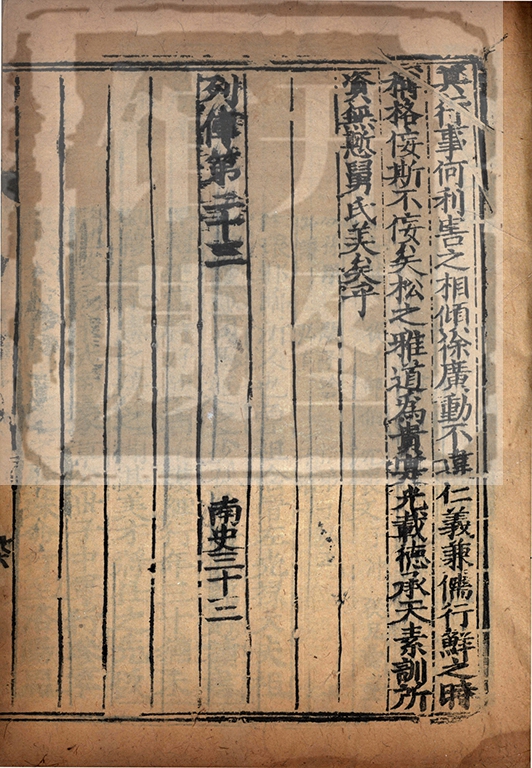 其行事何利害之相傾徐廣動不違仁義兼儒行鮮之時
稱格佞斯不佞矣松之雅道為貴實光載德承天素訓所
資無慙舅氏美矣乎
列傳第二十三
南史三十三